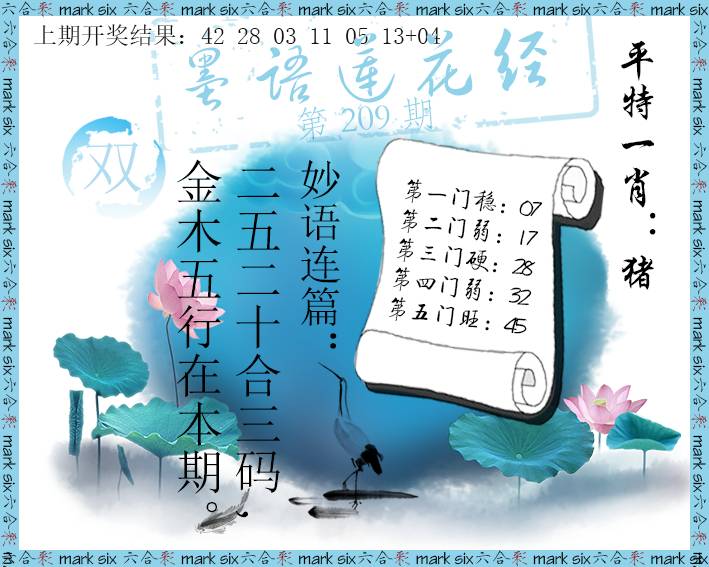 上期开奖结果：42 28 03 11 05 13+04
墨语莲花经
第 209 期
双
平特一肖：猪
妙语连篇：
二五二十合三码、
金木五行在本期。
第一门稳：07
第二门弱：17
第三门硬：28
第四门弱：32
第五门旺：45
六合彩 mark six 六合彩 mark six 六合彩 mark six 六合彩 mark six 六合彩